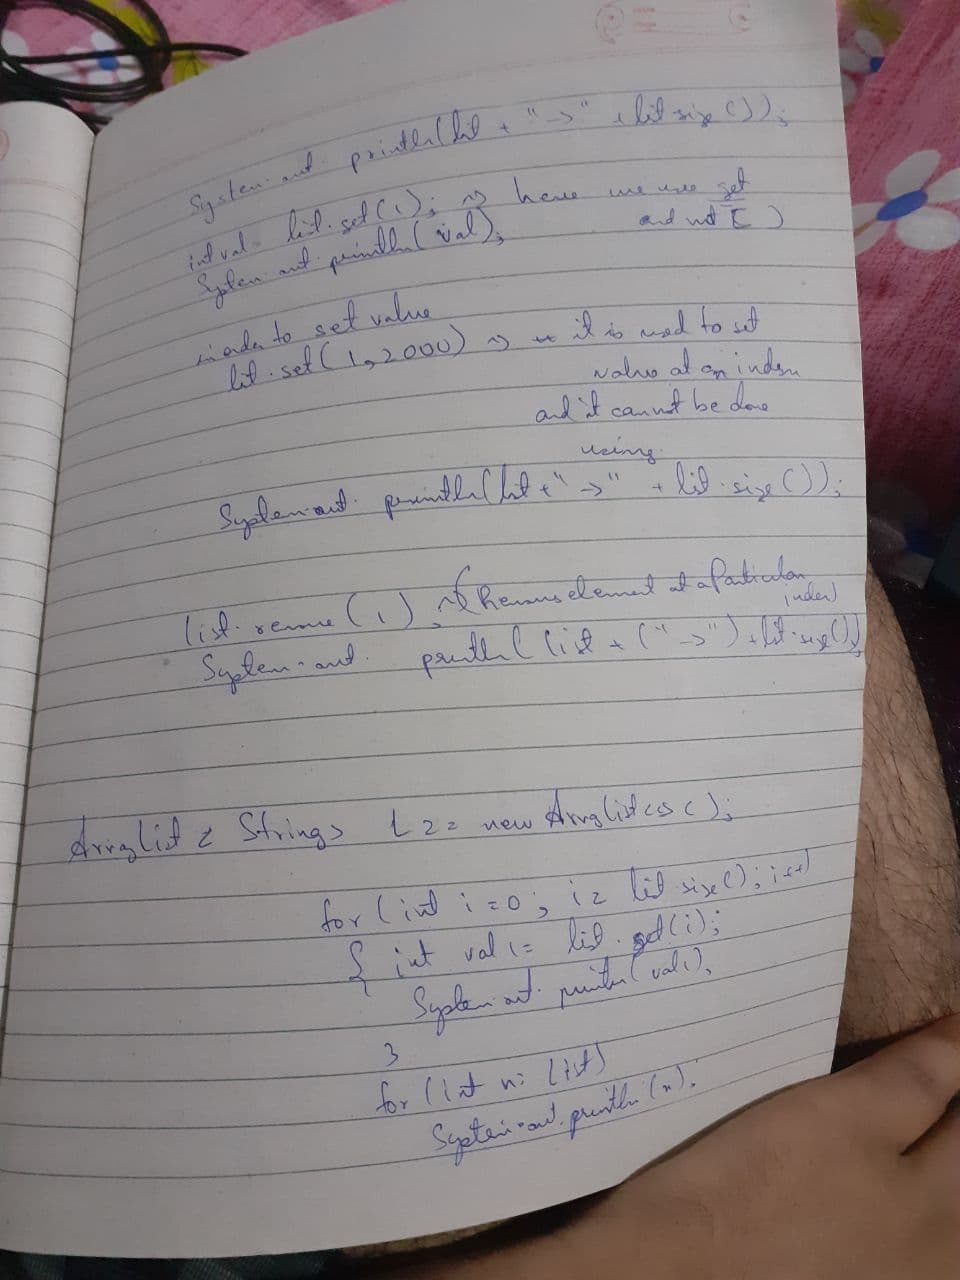 System.out. println(list + "->" + list.size());
int val = list.get(1); ~> here we use get
and not [ ]
System.out.println(val);
in order to set value
list.set(1,2000) ~> it is used to set
value at an index
and it cannot be done
using
System.out. println(list + "->" + list.size());
list.remove(1) ~> { Removes element at a Particular
index}
System.out. println(list + ("->") + list.size());
ArrayList < String> L2 = new ArrayList<>();
for (int i=0; i< list.size(); i++)
{ int val1 = list.get(i);
System.out.println(val1);
}
for (int n: list)
System.out.println(n);